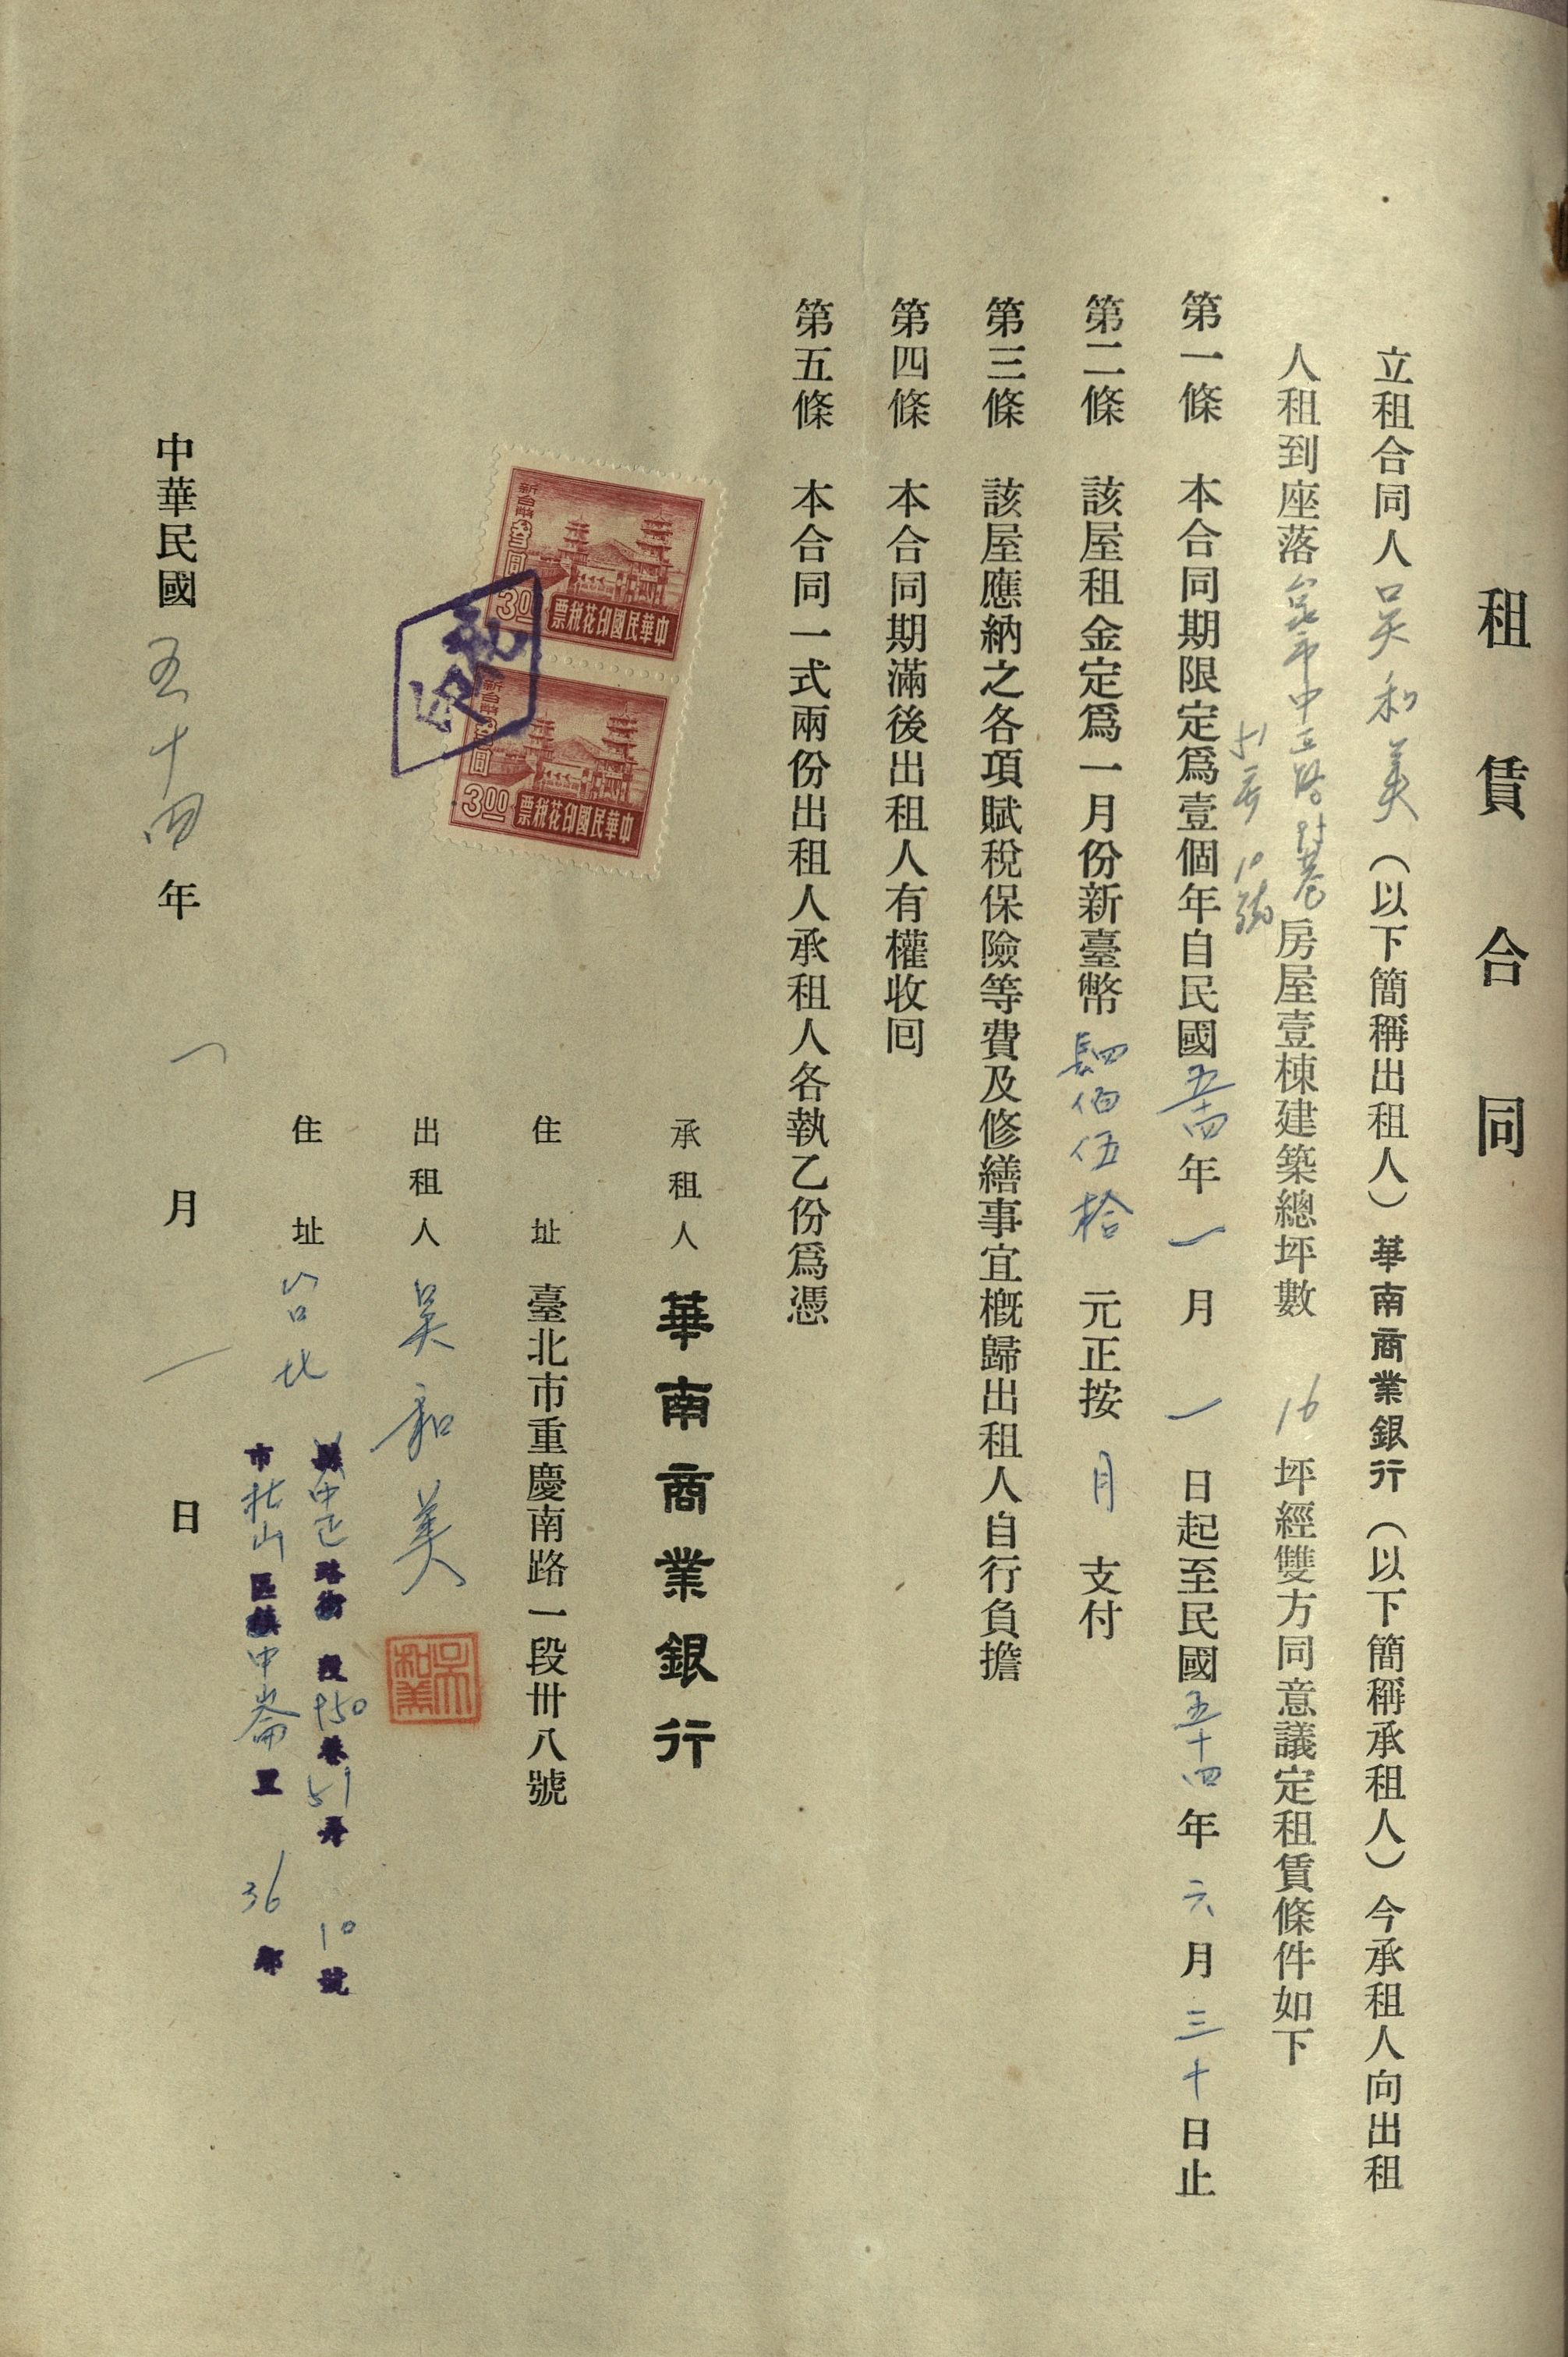 租賃合同
立租合同人吴和美（以下簡稱出租人）華南商業銀行（以下簡稱承租人）今承租人向出租
人租到座落市中正路巷房屋壹棟建築總坪數16坪經雙方同意議定租賃條件如下
51弄10號
第一條 本合同期限定爲壹個年自民國五十四年一月一日起至民國五十四年六月三十日止
第二條 該屋租金定爲一月份新臺幣肆佰伍拾元正按月支付
第三條 該屋應納之各項賦稅保險等費及修繕事宜槪歸出租人自行負擔
第四條 本合同期滿後出租人有權收囘
第五條 本合同一式兩份出租人承租人各執乙份爲憑
中華民國印花稅票
3.00
新台幣叁圓
中華民國印花稅票
3.00
新台幣叁圓
承租人 華南商業銀行
住址 臺北市重慶南路一段卅八號
出租人 吴和美
吳和美
住址 台北
縣中正路街 段950巷51弄10號
市松山區鎮中崙里36鄰
中華民國五十四年一月一日